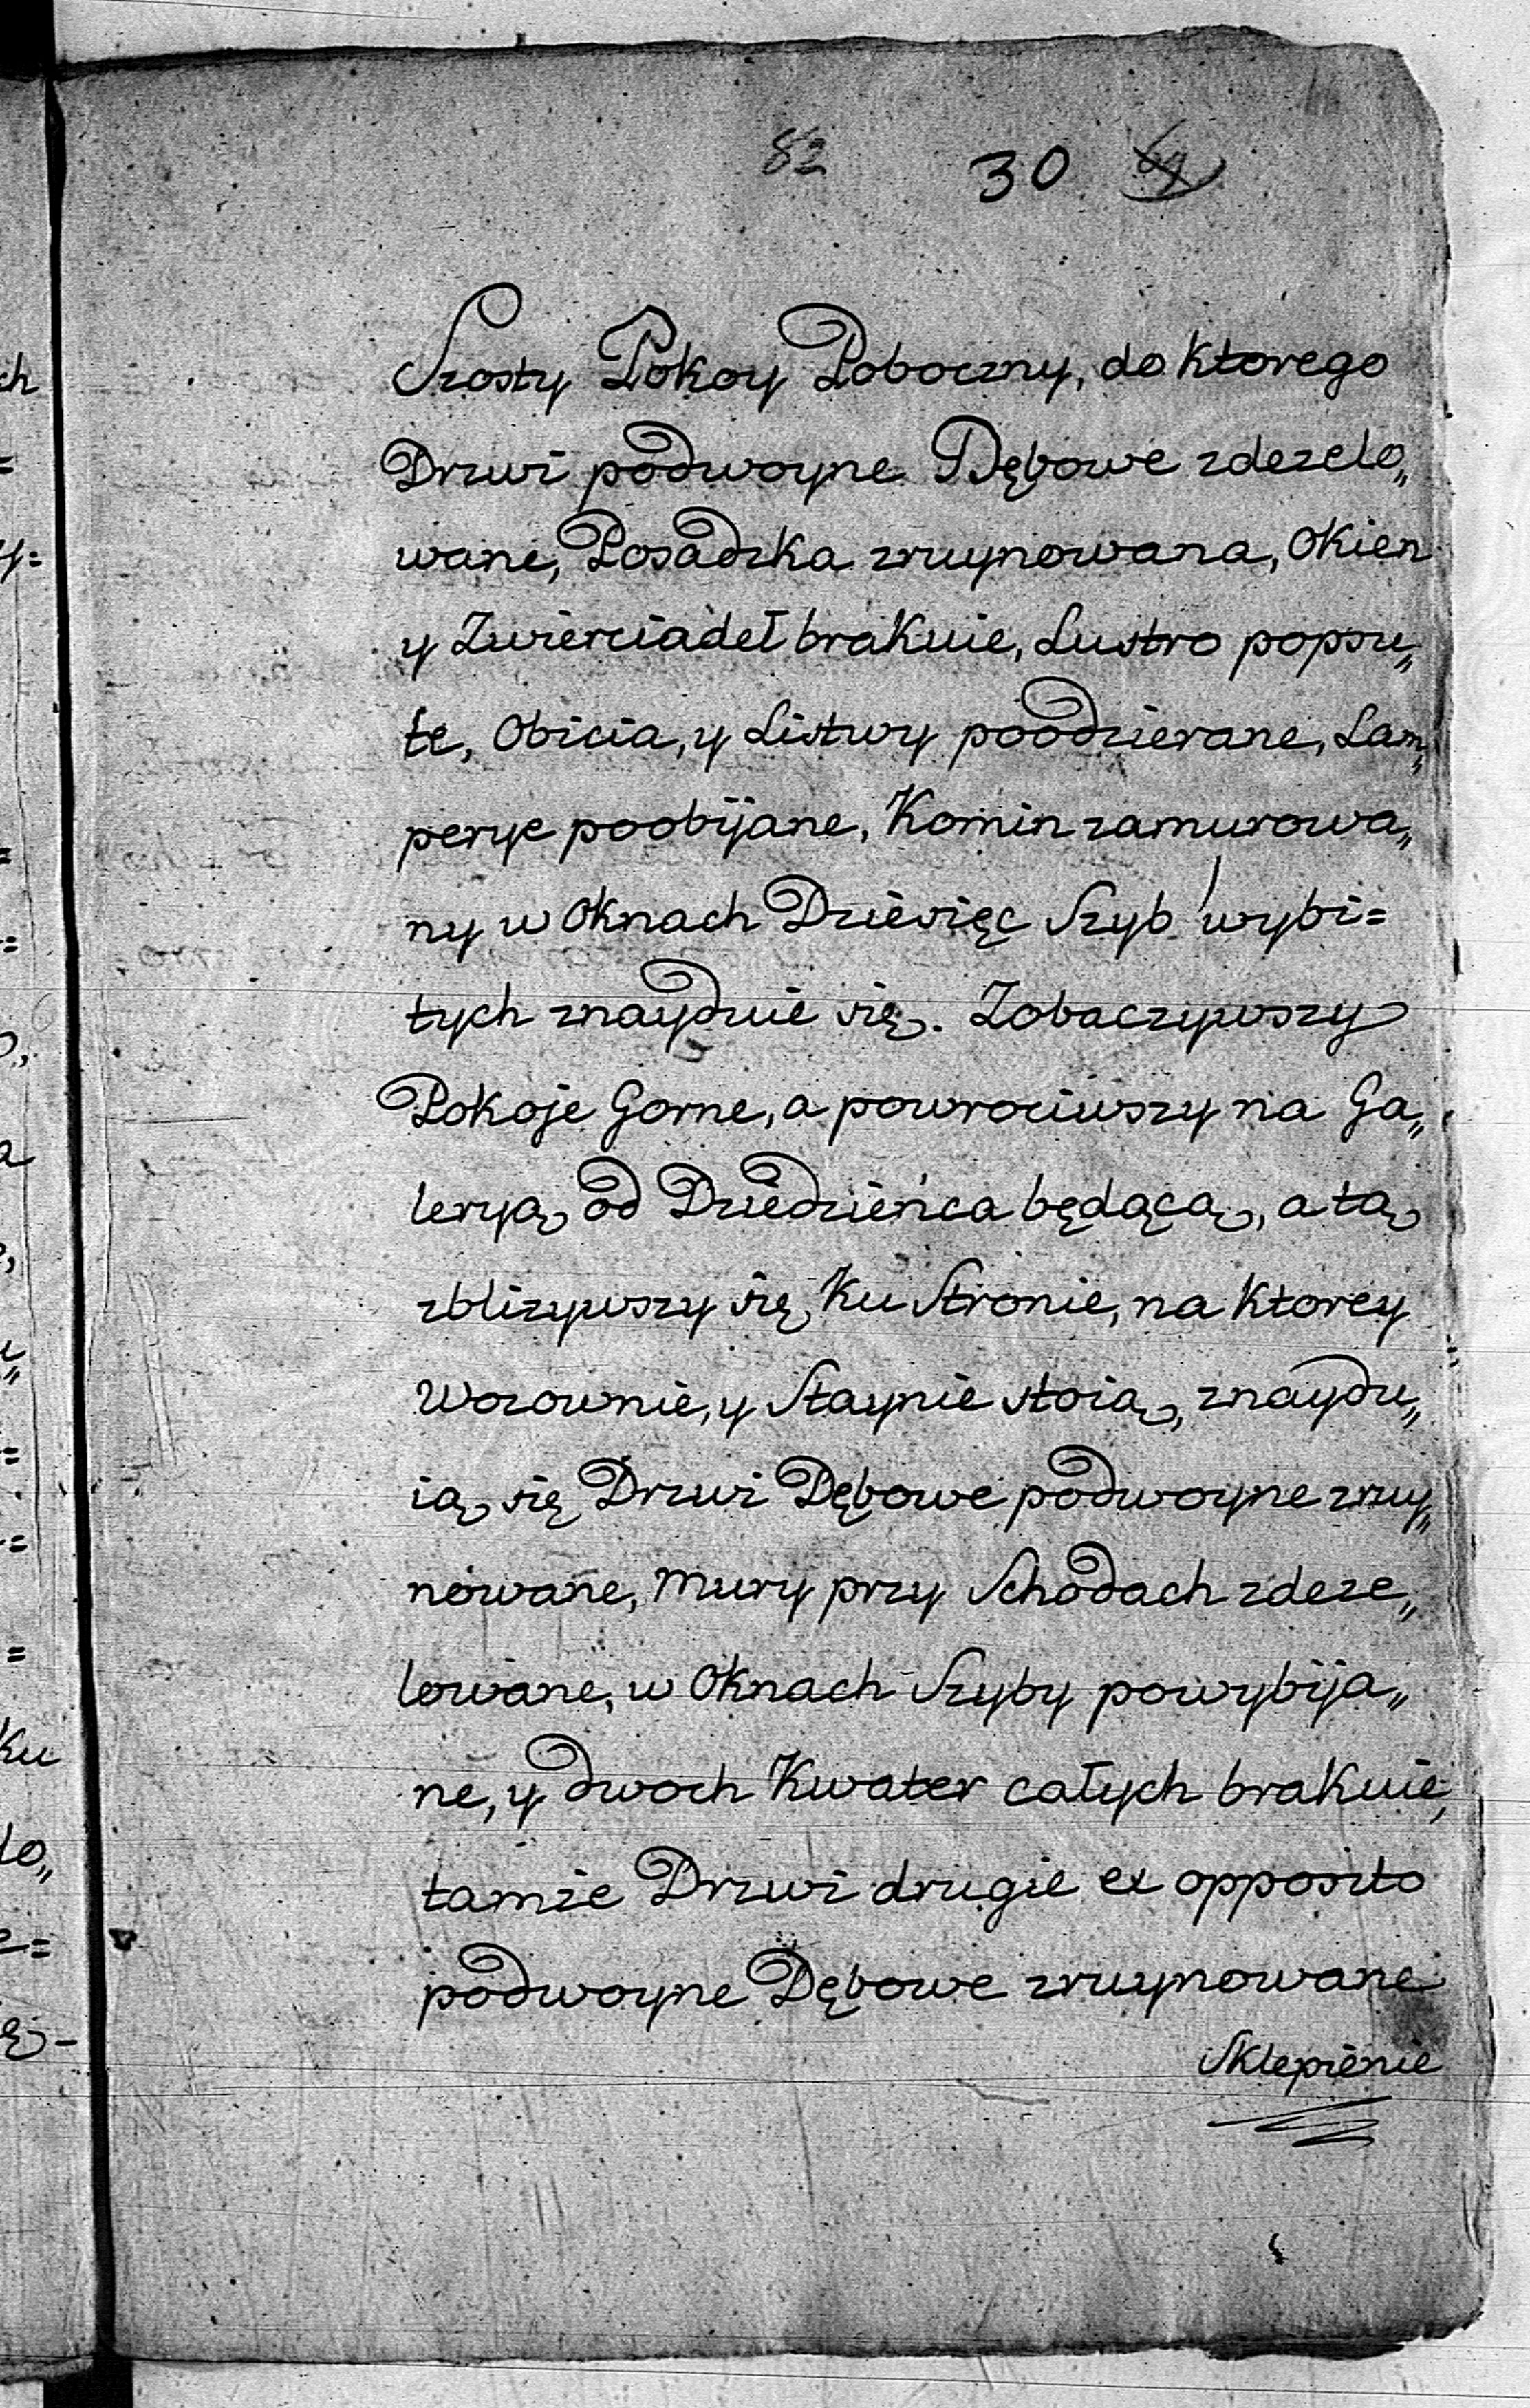 82 30
Szosty Pokoy Poboczny, do Ktorego
Drzwi podwoyne Dębowe zdezelo„
wane, Posadzka zruynowana, Okien
y Zwierciadeł brakuie, Lustro popsu„
te, Obicia, y Listwy poodzierane, Lam„
perye poobijane, Komin zamurowa„
ny w Oknach Dziesięc Szyb wybi=
tych znayduie się. Zobaczywszy
Pokoje Gorne, a powrociwszy na Ga„
leryą od Dziedzieńca będącą, a tą
zbliżywszy się Ku Stronie, na Ktorey
Wozownie, y Staynie stoią, znaydu„
ią się Drzwi Dębowe podwoyne zruy„
nowane, Mury przy Schodach zdeze„
lowane, w Oknach Szyby powybija„
ne, y dwoch Kwater całych brakuie,
tamże Drzwi drugie ex opposito
podwoyne Dębowe zruynowane
Sklepienie